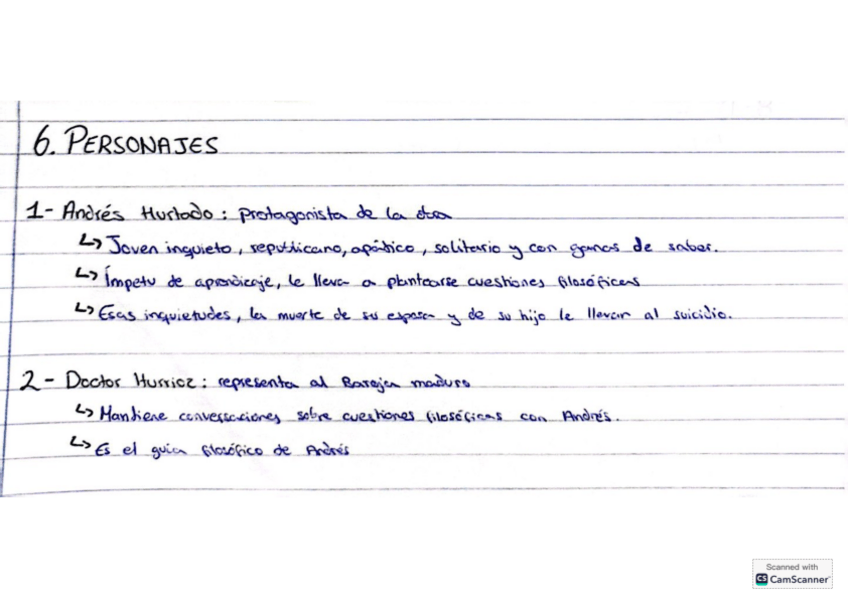 6. PERSONAJES
1- Andrés Hurtado: protagonista de la obra
↳ Joven inquieto, republicano, apático, solitario y con ganas de saber.
↳ Ímpetu de aprendizaje, le lleva a plantearse cuestiones filosóficas
↳ Esas inquietudes, la muerte de su esposa y de su hijo le llevan al suicidio.
2- Doctor Iturrioz: representa al Baroja maduro
↳ Mantiene conversaciones sobre cuestiones filosóficas con Andrés.
↳ Es el guía filosófico de Andrés
Scanned with
CS CamScanner